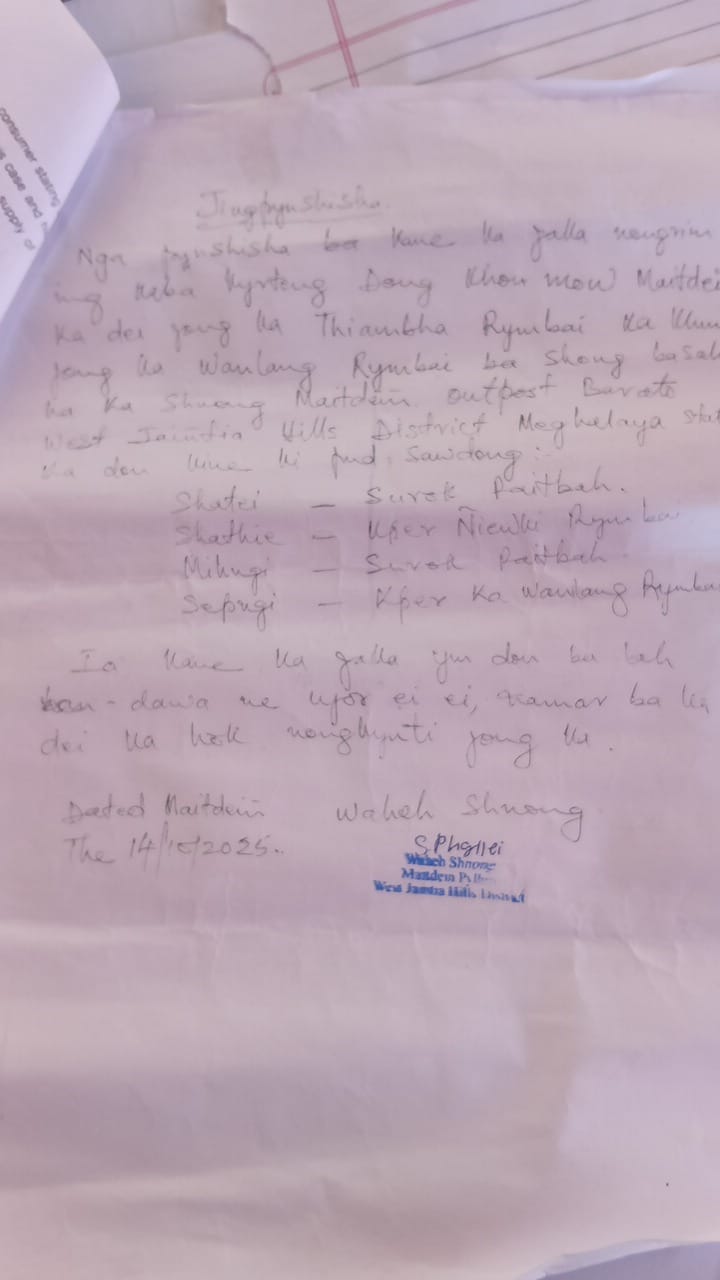 consumer stating
case and
supply of
Jingpynshisha.
Nga pynshisha ba kane ka jaka nongrim
ing kaba kyrteng Dong Khon mow Maitdei
Ka dei jong ka Thiambha Rymbai ka khun
jong ka Wanlang Rymbai ba shong basah
ha ka Shnong Maitdein outpost Barato
West Jaintia Hills District Meghalaya Stat
Ka don kine ki pud sawdong:-
Shatei — Surok Paitbah.
Shathie — Kper Niewki Rymbai
Mihngi — Surok Paitbah.
Sepngi — Kper Ka Wanlang Rymbai
Ia kane ka jaka ym don ba lah
ban-dawa ne ujor ei ei, namar ba ka
dei ka hok nongkynti jong ka.
Dated Maitdein Waheh Shnong
The 14/10/2025..
Waheh Shnong
Maitdein
West Jaintia Hills District